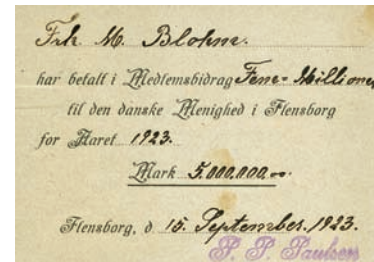 Frk M. Blohm.
har betalt i Medlemsbidrag Fem = Millioner
til den danske Menighed i Flensborg
for Aaret 1923.
Mark 5.000.000.00.
Flensborg, d. 15. September. 1923.
P. P. Paulsen